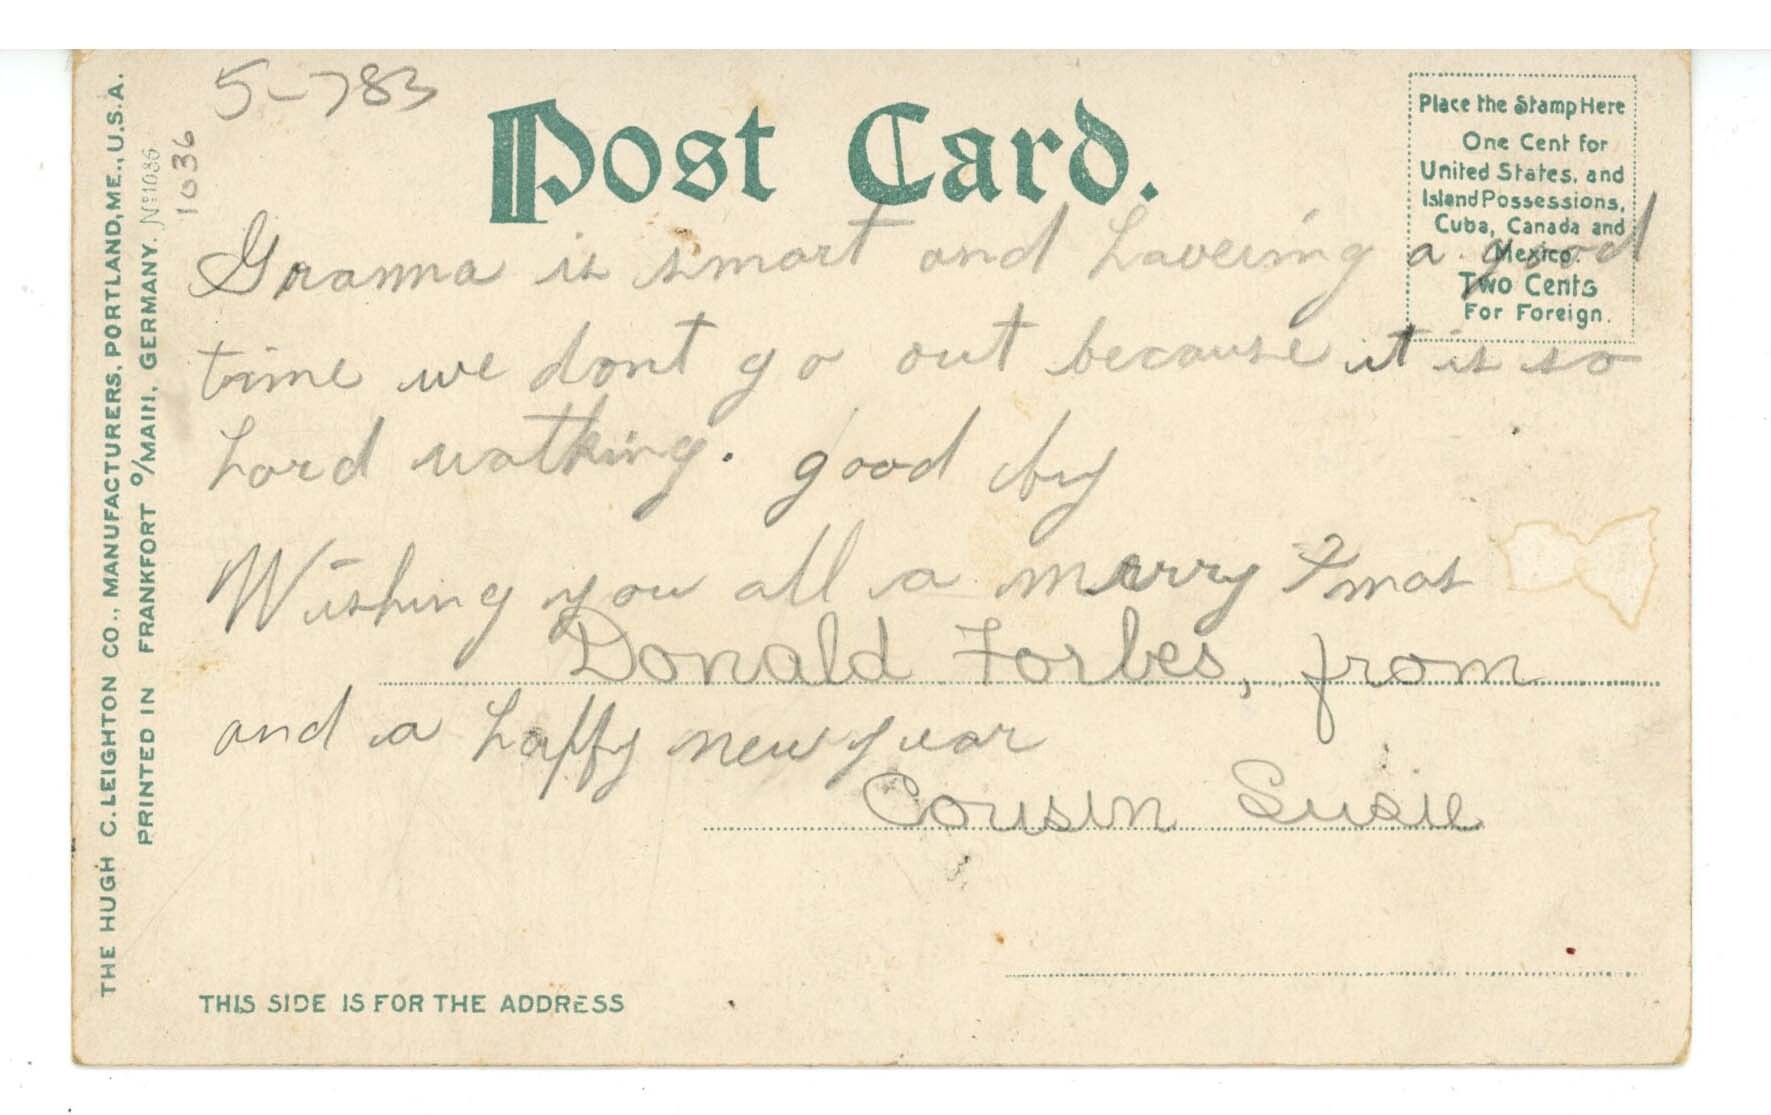 5-783
Post Card.
Place the Stamp Here
One Cent for
United States, and
Island Possessions,
Cuba, Canada and
Mexico.
Two Cents
For Foreign.
THE HUGH C. LEIGHTON CO., MANUFACTURERS, PORTLAND, ME., U.S.A.
PRINTED IN FRANKFORT o/MAIN, GERMANY. No 1036
1036
Gramma is smart and haveing a good
time we dont go out because it is so
hard walking. good by
Wishing you all a merry Xmas
Donald Forbes, from
and a happy new year
Cousin Susie
THIS SIDE IS FOR THE ADDRESS